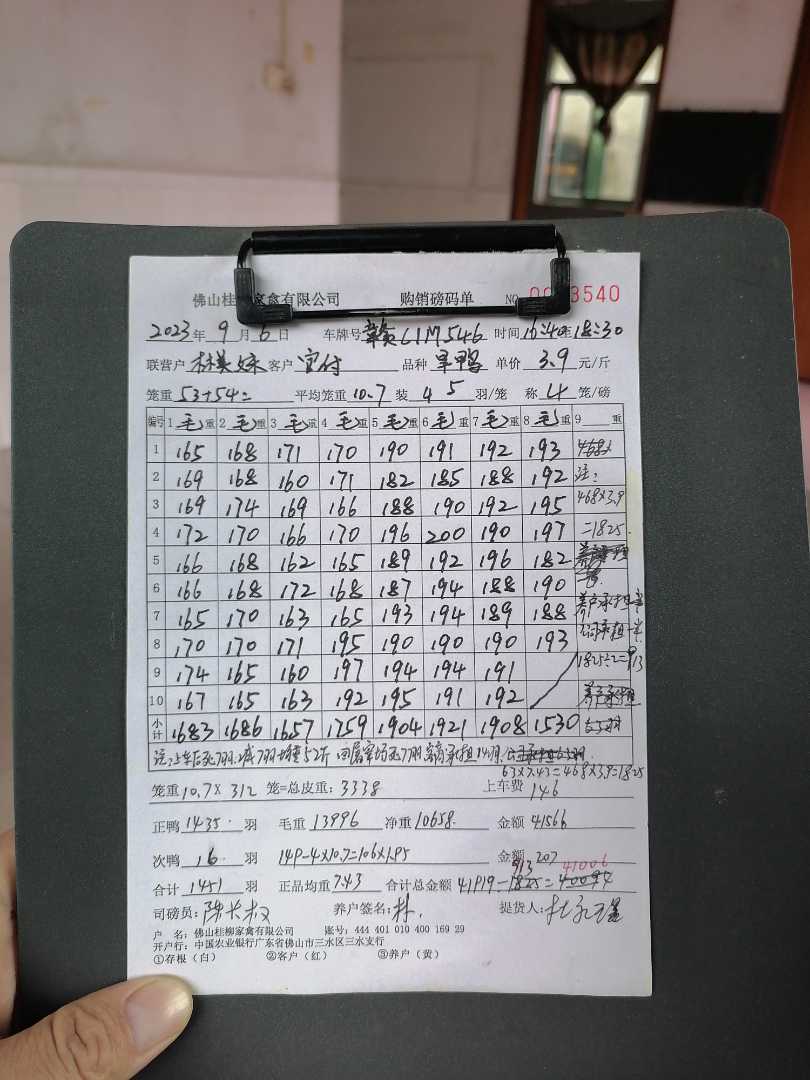 佛山桂 家禽有限公司 购销磅码单 NO 3540
2023年 9月 6日 车牌号 赣L1M546 时间 16:40至18:30
联营户 林美妹 客户 宜付 品种 旱鸭 单价 3.9 元/斤
笼重 53+54= 平均笼重 10.7 装 4 5 羽/笼 称 4 笼/磅
编号 1 毛重 2 毛重 3 毛重 4 毛重 5 毛重 6 毛重 7 毛重 8 毛重 9 重
1 165 168 171 170 190 191 192 193
2 169 168 160 171 182 185 188 192 注:
3 169 174 169 166 188 190 192 195 468×3.9
4 172 170 166 170 196 200 190 197 =1825.
5 166 168 162 165 189 192 196 182
6 166 168 172 168 187 194 188 190
7 165 170 163 165 193 194 189 188 养户承担一半
8 170 170 171 195 190 190 190 193 公司承担一半
9 174 165 160 197 194 194 191 1825÷2=913
10 167 165 163 192 195 191 192
小计 1683 1686 1657 1759 1904 1921 1908 1530
63×7.43=468×3.9=1825
笼重 10.7× 312 笼=总皮重: 3338 上车费 146
正鸭 1435 羽 毛重 13996 净重 10658 金额 41566
次鸭 16 羽 149-4×10.7=106×1.95 金额 207
913 41006
合计 1451 羽 正品均重 7.43 合计总金额 41919-1825=40094
司磅员: 养户签名: 林 提货人:
户 名: 佛山桂柳家禽有限公司 账号: 444 401 010 400 169 29
开户行: 中国农业银行广东省佛山市三水区三水支行
①存根（白） ②客户（红） ③养户（黄）